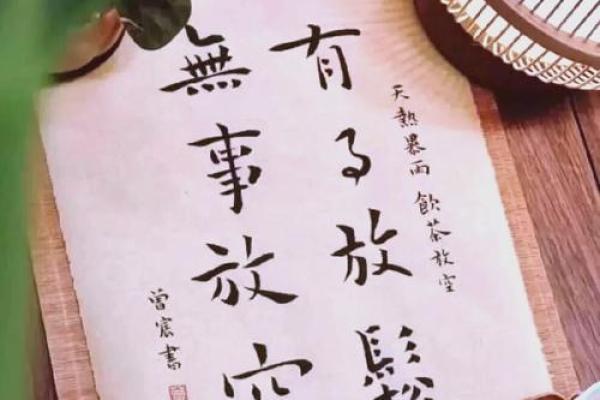 天熱暴雨 飲茶放空
有事放鬆
無事放空
曾宸書